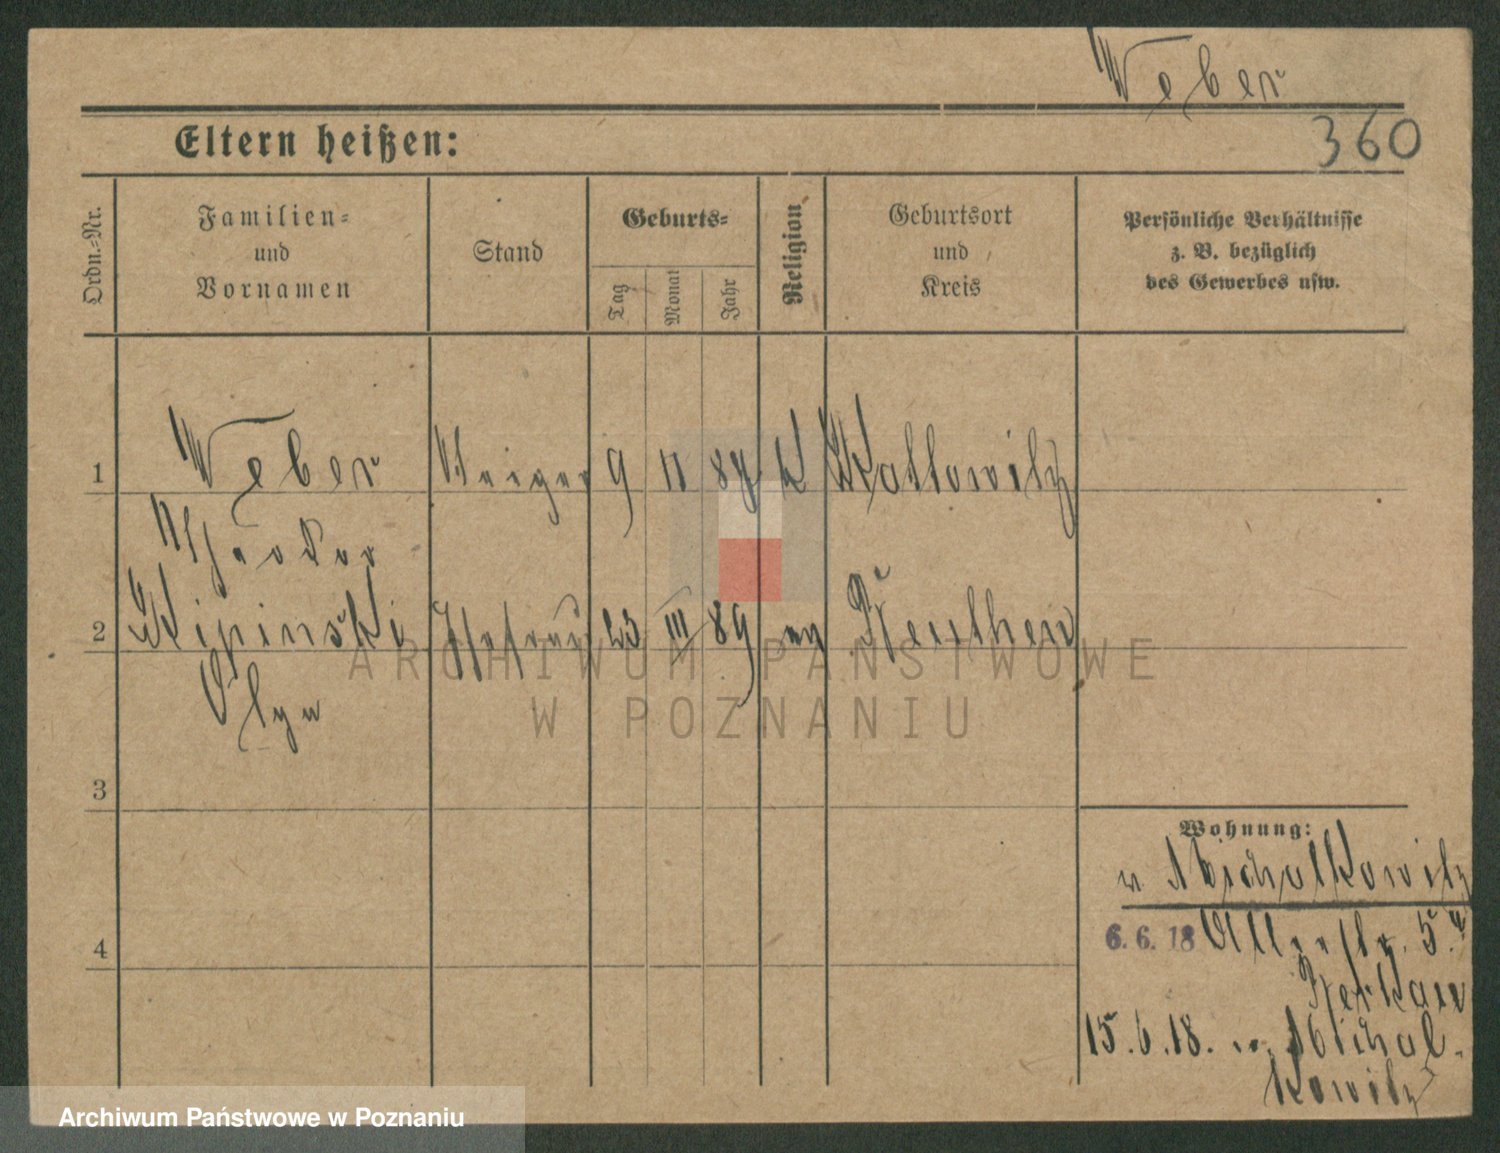 Weber
360
Eltern heißen:
Ordn.-Nr.
Familien-
und
Vornamen
Stand
Geburts-
Tag
Monat
Jahr
Religion
Geburtsort
und
Kreis
Persönliche Verhältnisse
z. B. bezüglich
des Gewerbes usw.
1 Weber 9 11 89 K Kattowitz
Theodor
2 Lipinski 23 III 89 Beuthen
Olga
3
4
Wohnung:
n. Michalkowitz
6. 6. 18
15.6.18. Michal-
kowitz
ARCHIWUM PAŃSTWOWE
W POZNANIU
Archiwum Państwowe w Poznaniu